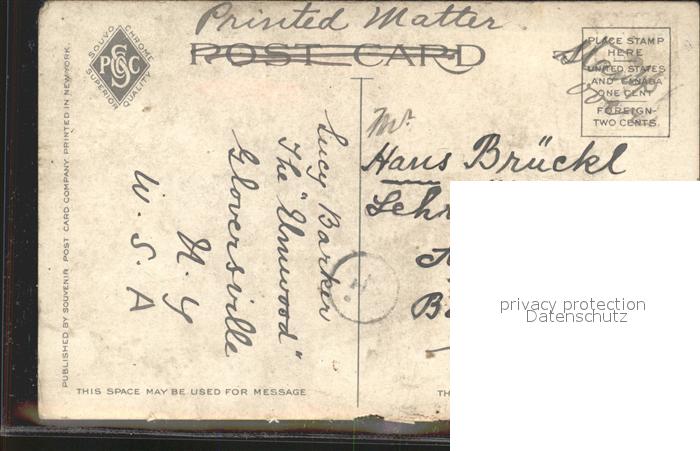 Printed Matter
POST CARD
SOUVO CHROME
SPCCo
SUPERIOR QUALITY
PLACE STAMP
HERE
UNITED STATES
AND CANADA
ONE CENT
FOREIGN-
TWO CENTS
PUBLISHED BY SOUVENIR POST CARD COMPANY PRINTED IN NEW YORK.
Lucy Barker
The "Elmwood"
Gloversville
N. Y
U. S. A
Mr.
Hans Brückl
Lehr
privacy protection
Datenschutz
THIS SPACE MAY BE USED FOR MESSAGE
TH